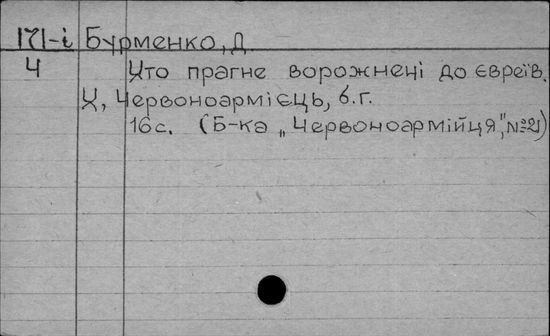 171-і Бурменко, Д.
4 Хто прагне ворожнечі до євреїв.
Х, Червоноармієць, б.г.
16с. (Б-ка „Червоноармійця", №2)